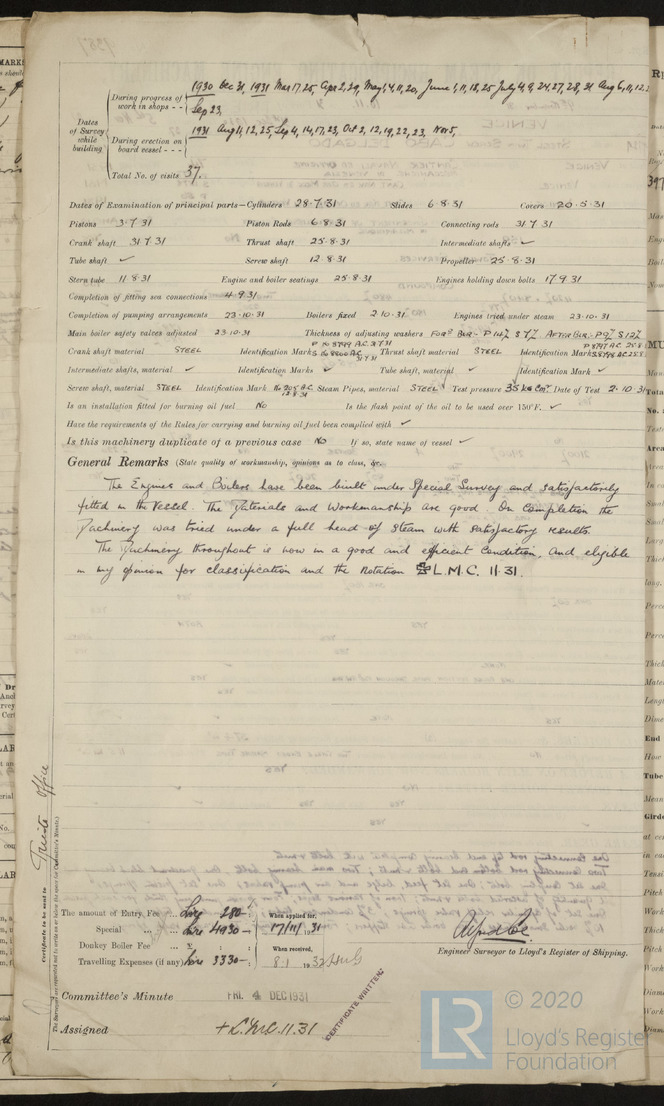 1930 Dec 31, 1931 Mar 17, 25, Apr 2, 29, May 1, 4, 11, 20, June 1, 11, 18, 25 July 4, 9, 24, 27, 28, 31 Aug 6, 11, 12,
During progress of work in shops - -
Sep 23,
Dates of Survey while building
1931 Aug 11, 12, 25, Sep 4, 14, 17, 23, Oct 2, 12, 19, 22, 23, Nov 5,
During erection on board vessel - - -
Total No. of visits 37.
Dates of Examination of principal parts—Cylinders 28·7·31 Slides 6·8·31 Covers 20·5·31
Pistons 3·7·31 Piston Rods 6·8·31 Connecting rods 31·7·31
Crank shaft 31·7·31 Thrust shaft 25·8·31 Intermediate shafts ✓
Tube shaft ✓ Screw shaft 12·8·31 Propeller 25·8·31
Stern tube 11·8·31 Engine and boiler seatings 25·8·31 Engines holding down bolts 17·9·31
Completion of fitting sea connections 4·9·31
Completion of pumping arrangements 23·10·31 Boilers fixed 2·10·31 Engines tried under steam 23·10·31
Main boiler safety valves adjusted 23·10·31 Thickness of adjusting washers
Crank shaft material STEEL Identification Mark Thrust shaft material STEEL Identification Mark
Intermediate shafts, material ✓ Identification Marks ✓ Tube shaft, material ✓ Identification Mark ✓
Screw shaft, material STEEL Identification Mark No 205 A.C. 12·8·31 Steam Pipes, material STEEL Test pressure 35 kg Cm² Date of Test 2·10·31
Is an installation fitted for burning oil fuel No Is the flash point of the oil to be used over 150°F. ✓
Have the requirements of the Rules for carrying and burning oil fuel been complied with ✓
Is this machinery duplicate of a previous case No If so, state name of vessel ✓
General Remarks (State quality of workmanship, opinions as to class, &c.
The Engines and Boilers have been built under Special Survey and satisfactorily
fitted in the Vessel. The Materials and Workmanship are good. On Completion the
Machinery was tried under a full head of Steam with satisfactory results.
The Machinery throughout is now in a good and efficient Condition, and eligible
in my opinion for classification and the Notation L.M.C. 11·31.
Trieste Office
Certificate to be sent to
The amount of Entry Fee ... Lire 280·-
Special ... Lire 4930·-
Donkey Boiler Fee ... £ : :
Travelling Expenses (if any) Lire 3330·-
When applied for,
17/11/31
When received,
8.1.1932
Engineer Surveyor to Lloyd's Register of Shipping.
Committee's Minute FRI. 4 DEC 1931
Assigned + L.M.C. 11.31
CERTIFICATE WRITTEN.
LR
© 2020
Lloyd's Register
Foundation